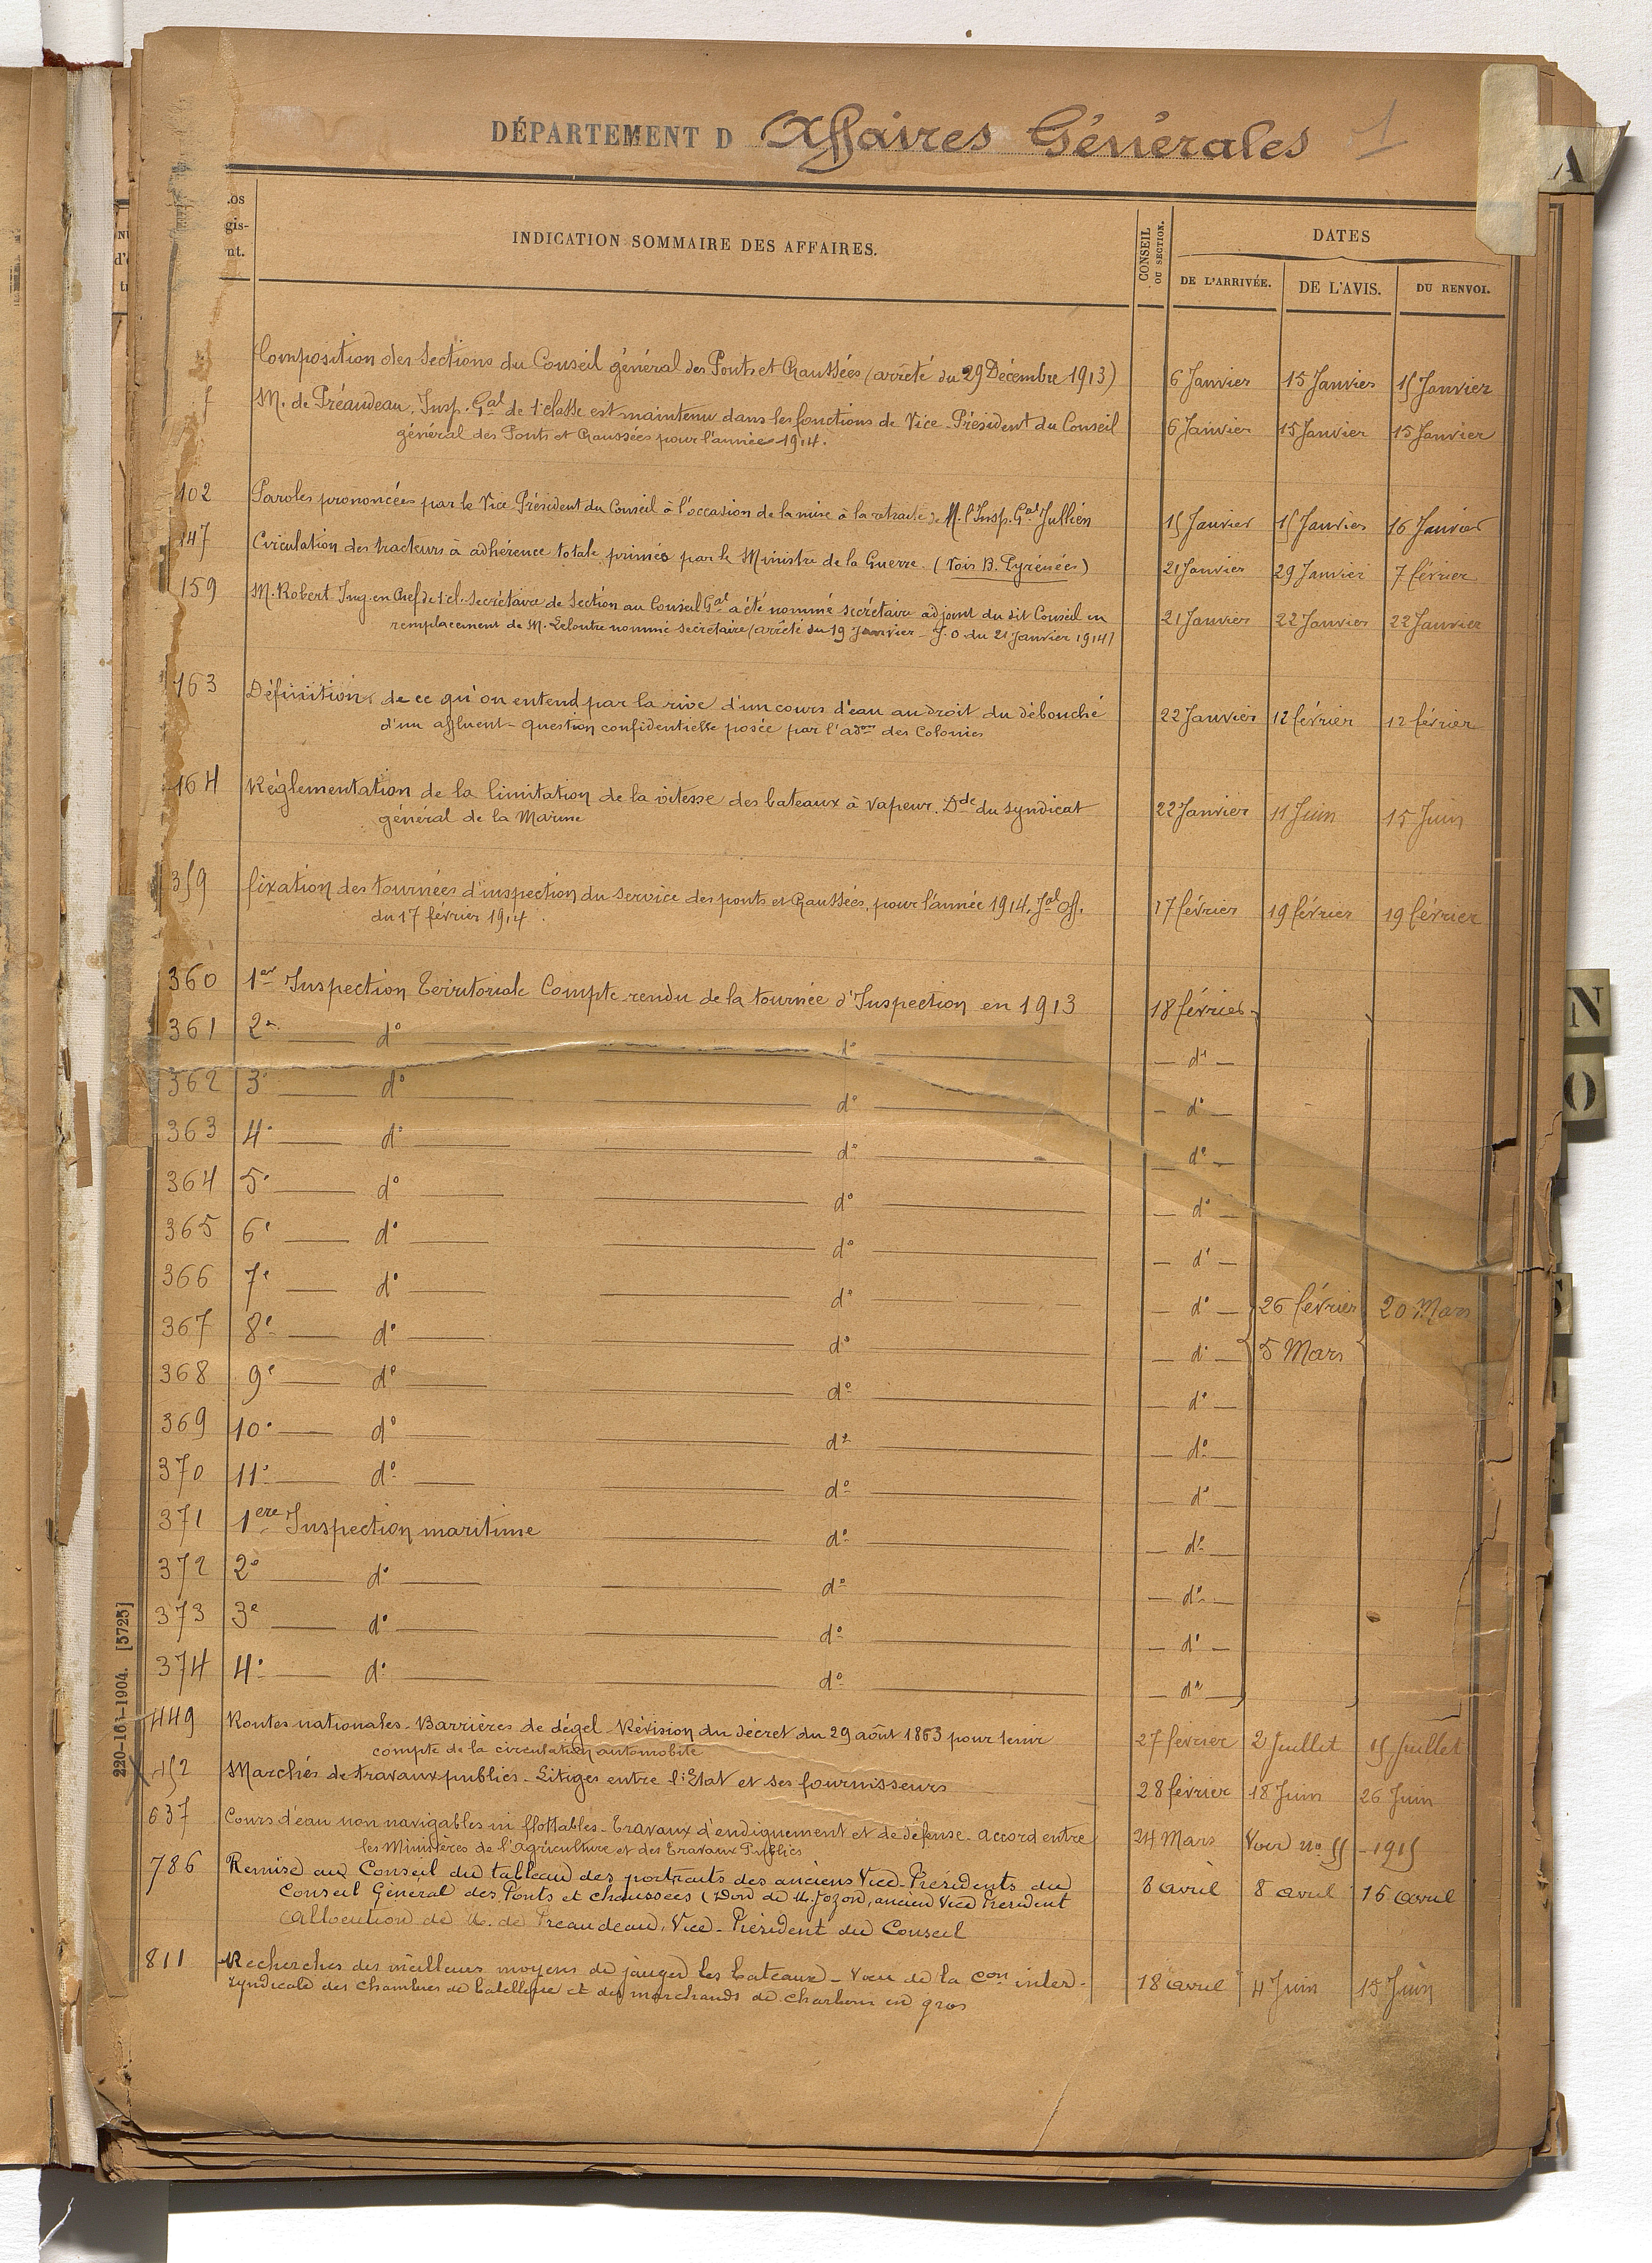 DÉPARTEMENT D Affaires Générales 1
A
.os
gis-
nt.
INDICATION SOMMAIRE DES AFFAIRES.
CONSEIL OU SECTION.
DATES
DE L'ARRIVÉE. DE L'AVIS. DU RENVOI.
Composition des Sections du Conseil général des Ponts et Chaussées (arrêté du 29 Décembre 1913) 6 Janvier 15 Janvier 15 Janvier
M. de Préaudeau, Insp. Gal de 1e classe est maintenu dans les fonctions de Vice-Président du Conseil
général des Ponts et Chaussées pour l'année 1914. 6 Janvier 15 Janvier 15 Janvier
102 Paroles prononcées par le Vice Président du Conseil à l'occasion de la mise à la retraite de M. l'Insp. Gal Jullien 15 Janvier 15 Janvier 16 Janvier
147 Circulation des tracteurs à adhérence totale primés par le Ministre de la Guerre. (Vois B. Pyrénées) 21 Janvier 29 Janvier 7 février
159 M. Robert Ing. en Chef de 1e cl. Secrétaire de Section au Conseil Gal a été nommé secrétaire adjoint du dit Conseil en
remplacement de M. Leloutre nommé secrétaire (arrêté du 19 Janvier - J.O du 21 Janvier 1914) 21 Janvier 22 Janvier 22 Janvier
163 Définition de ce qu'on entend par la rive d'un cours d'eau au droit du débouché
d'un affluent - question confidentielle posée par l'adon des Colonies 22 Janvier 12 février 12 février
164 Réglementation de la limitation de la vitesse des bateaux à vapeur. Dde du syndicat
général de la Marine 22 Janvier 11 Juin 15 Juin
359 fixation des tournées d'inspection du service des ponts et Chaussées, pour l'année 1914. Jal Off.
du 17 février 1914. 17 février 19 février 19 février
360 1er Inspection Territoriale Compte-rendu de la tournée d'Inspection en 1913 18 février
361 2e — do — do — do —
362 3e — do — do — do —
363 4e — do — do — do —
364 5e — do — do — do —
365 6e — do — do — do —
366 7e — do — do — do — 26 février 20 Mars
367 8e — do — do — do — 5 Mars
368 9e — do — do — do —
369 10e — do — do — do —
370 11e — do — do — do —
371 1ere Inspection maritime — do — do —
372 2e — do — do — do —
373 3e — do — do — do —
374 4e — do — do — do —
449 Routes nationales - Barrières de dégel - Révision du décret du 29 août 1863 pour tenir
compte de la circulation automobile 27 février 2 Juillet 15 Juillet
452 Marchés de travaux publics - Litiges entre l'Etat et ses fournisseurs 28 février 18 Juin 26 Juin
637 Cours d'eau non navigables ni flottables - Travaux d'endiguement et de défense - accord entre
les Ministères de l'Agriculture et des Travaux Publics 24 Mars Voir no 55 - 1915
786 Remise au Conseil du tableau des portraits des anciens Vice-Présidents du
Conseil Général des Ponts et chaussées (Don de M. Jozon, ancien Vice Président
Allocution de M. de Preaudeau, Vice-Président du Conseil 8 avril 8 avril 16 avril
811 Recherches des meilleurs moyens de jauger les bateaux - Voeu de la Con inter-
syndicale des Chambres de batellerie et des marchands de Charbons en gros 18 avril 4 Juin 15 Juin
220-163-1904. [5725]
N
O